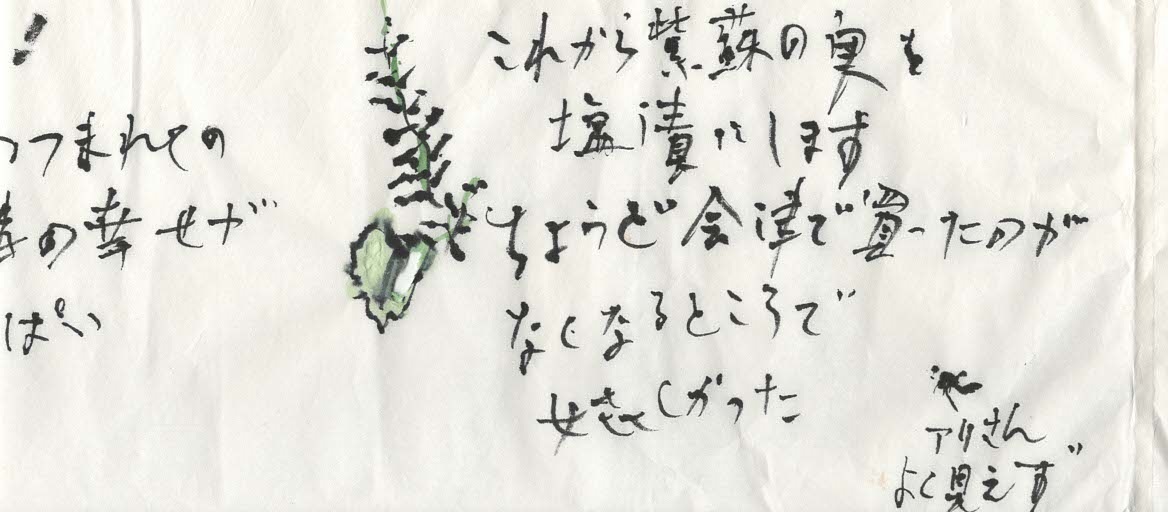 これから紫蘇の実を
塩漬にします
ちょうど会津で買ったのが
なくなるところで
嬉しかった
アリさん
よく見えず
つつまれての
の幸せが
ぱい